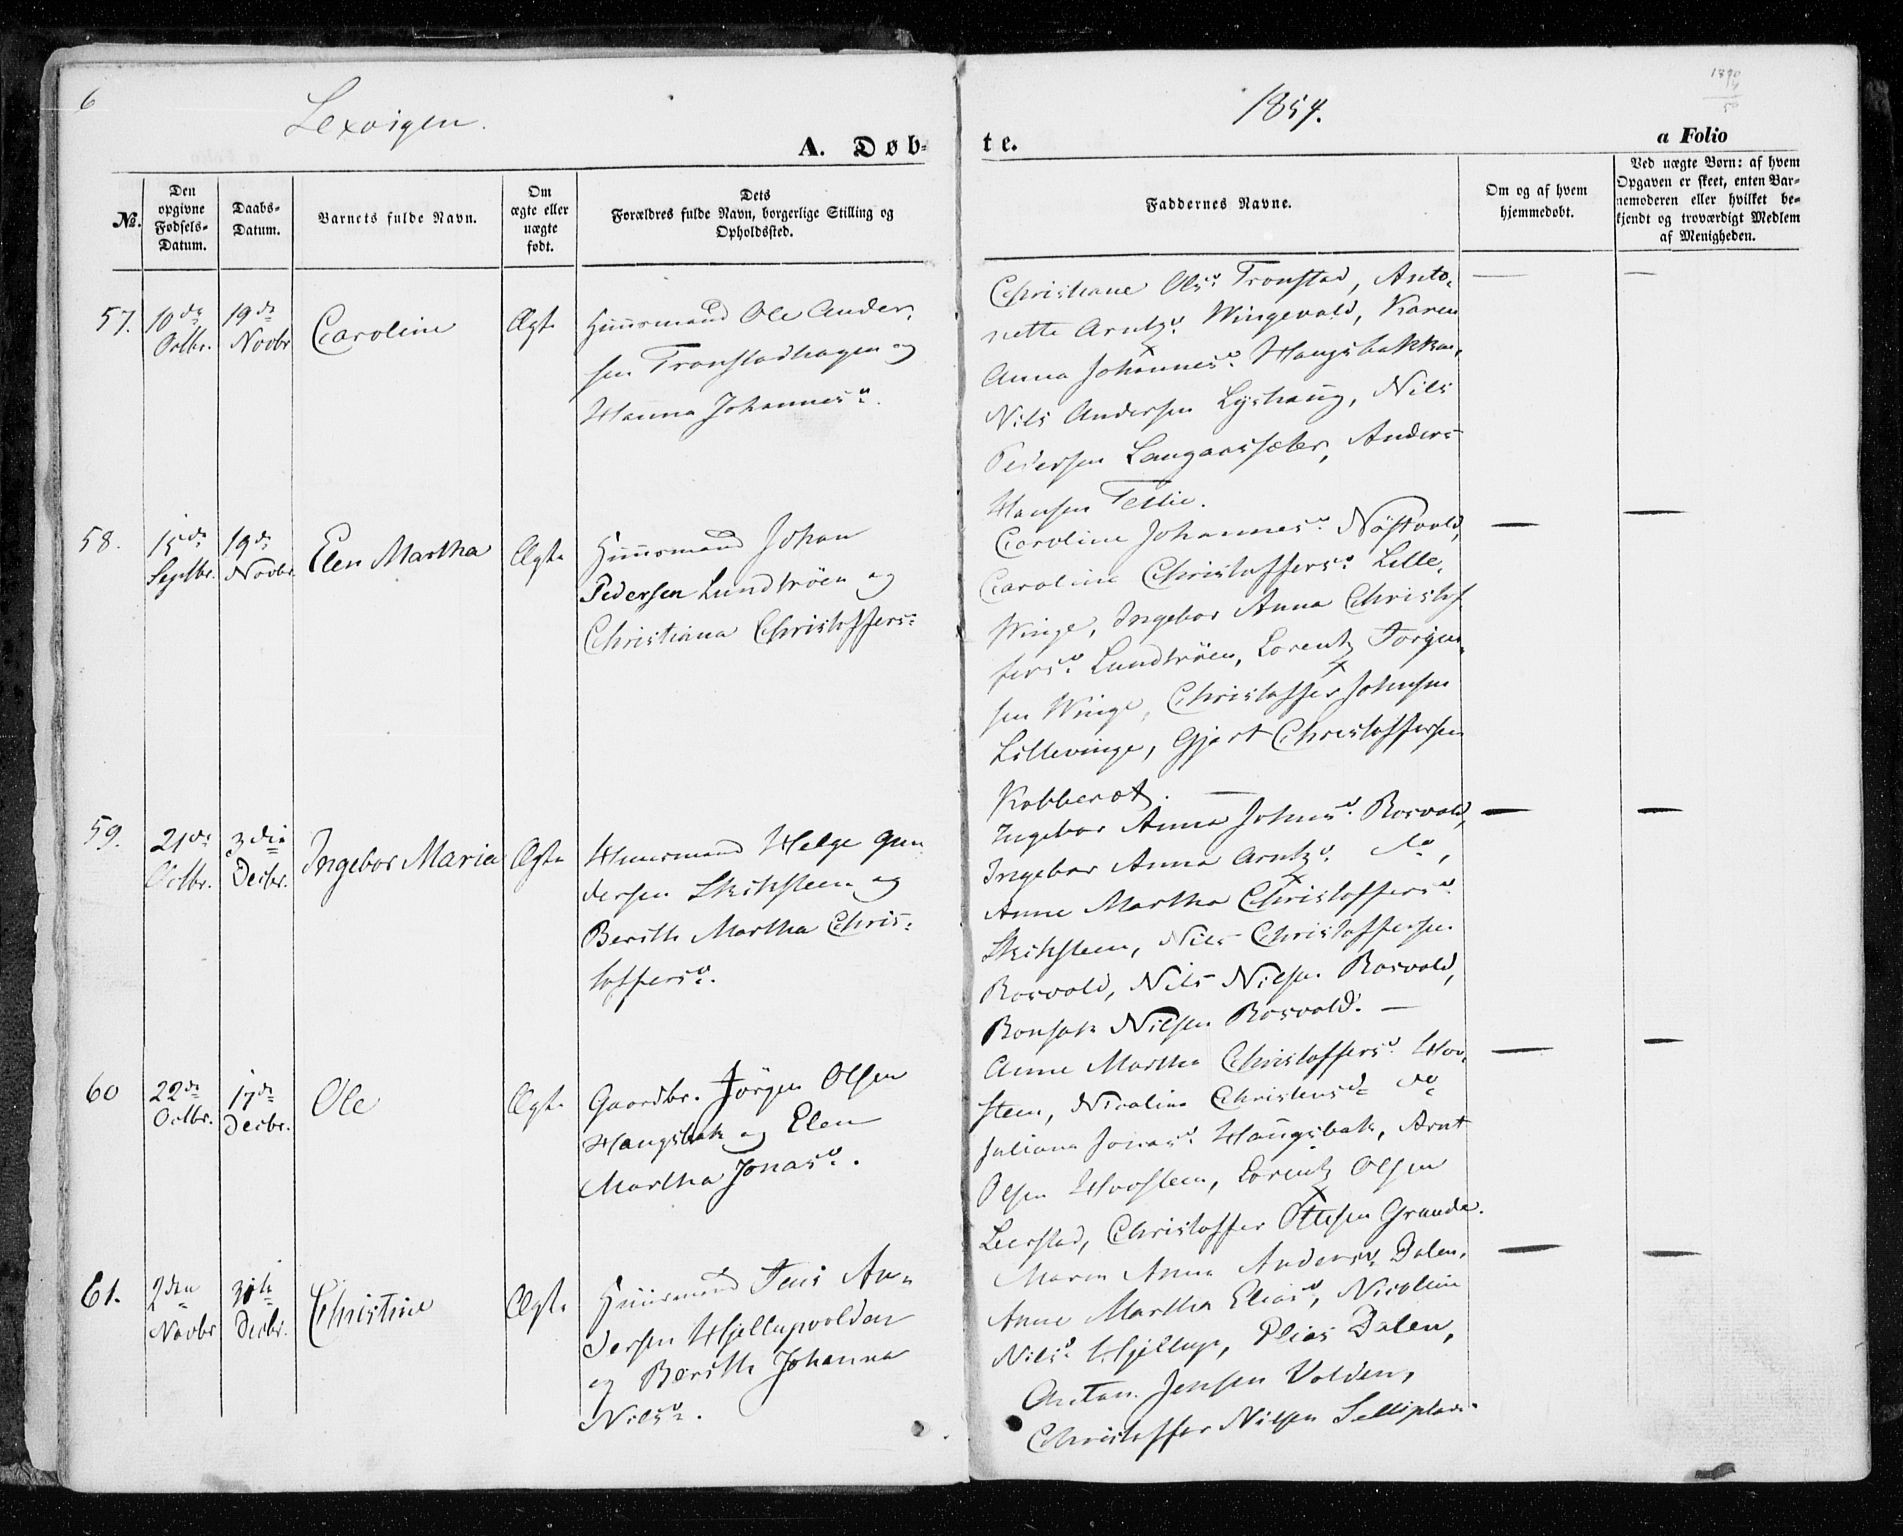 6
Lexvigen.
1854.
A. Døb-
te.
a Folio
No.
Den
opgivne
Fødsels-
Datum.
Daabs-
Datum.
Barnets fulde Navn.
Om
ægte eller
uægte
født.
Dets
Forældres fulde Navn, borgerlige Stilling og
Opholdssted.
Faddernes Navne.
Om og af hvem
hjemmedøbt.
Ved uægte Børn: af hvem
Opgaven er skeet, enten Bar-
nemoderen eller hvilket be-
kjendt og troværdigt Medlem
af Menigheden.
57.
10de
Octbr.
19de
Novbr
Caroline
Ægte
Huusmand Ole Ander-
sen Tronstadhagen og
Hanna Johannesd.
Christiane Olsd. Tronstad, Anto-
nette Arntzd. Wingevold, Karen
Anna Johannesd. Haugsbakken,
Nils Andersen Lyshaug, Nils
Pedersen Langaassæter, Anders
Hansen Tellie.
58.
15de
Septbr.
19de
Novbr.
Elen Martha
Ægte
Huusmand Johan
Pedersen Lundtrøen og
Christiana Christoffersd.
Caroline Johannesd. Nøstvold,
Caroline Christoffersd. Lille-
Winge, Ingebor Anna Christof
fersd. Lundtrøen, Lorentz Torger-
sen Winge, Christoffer Johnsen
Lillevinge, Gjert Christoffersen
Kobberøt.
59.
21de
Octbr.
3die
Decbr.
Ingebor Maria
Ægte
Huusmand Helge Gun
dersen Skiksteen og
Berith Martha Chris-
toffersd.
Ingebor Anna Johnsd. Rosvold,
Ingebor Anna Arntzd. do,
Anne Martha Christoffersd.
Skiksteen, Nils Christoffersen
Rosvold, Nils Nilsen Rosvold,
Ronsak Nilsen Rosvold.
60
22de
Octbr.
17de
Decbr.
Ole
Ægte
Gaardbr. Jørgen Olsen
Haugsbak og Elen
Martha Jonasd.
Anne Martha Christoffersd. Hov-
steen, Nicoline Christensd. do
Juliana Jonasd. Haugsbak, Arnt
Olsen Hovsteen, Lorentz Olsen
Leerstad, Christoffer Ottesen Grande.
61.
2den
Novbr
31te
Decbr.
Christine
Ægte
Huusmand Jens An-
dersen Hjellupvolden
og Berith Johanna
Nilsd.
Maren Anna Andersd. Dalen,
Anne Martha Eliasd., Nicoline
Nilsd. Hjellup, Elias Dalen,
Anton Jensen Volden,
Christoffer Nilsen Selliplads.